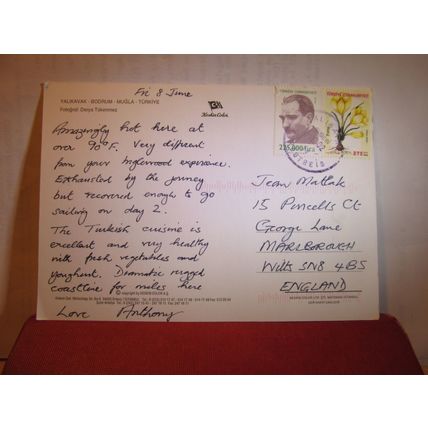 Fri 8 June
YALIKAVAK - BODRUM - MUĞLA - TÜRKİYE
Fotoğraf: Derya Tükenmez
Keskin Color
TÜRKİYE CUMHURİYETİ
225.000 lira
TÜRKİYE CUMHURİYETİ
Amazingly hot here at
over 90°F. Very different
from your Inglewood experience.
Exhausted by the journey
but recovered enough to go
sailing on day 2.
The Turkish cuisine is
excellent and very healthy
with fresh vegetables and
youghurt. Dramatic rugged
coastline for miles here
Love Anthony
Team Matlak
15 Purcells Ct
George Lane
MARLBOROUGH
Wilts SN8 4BS
ENGLAND